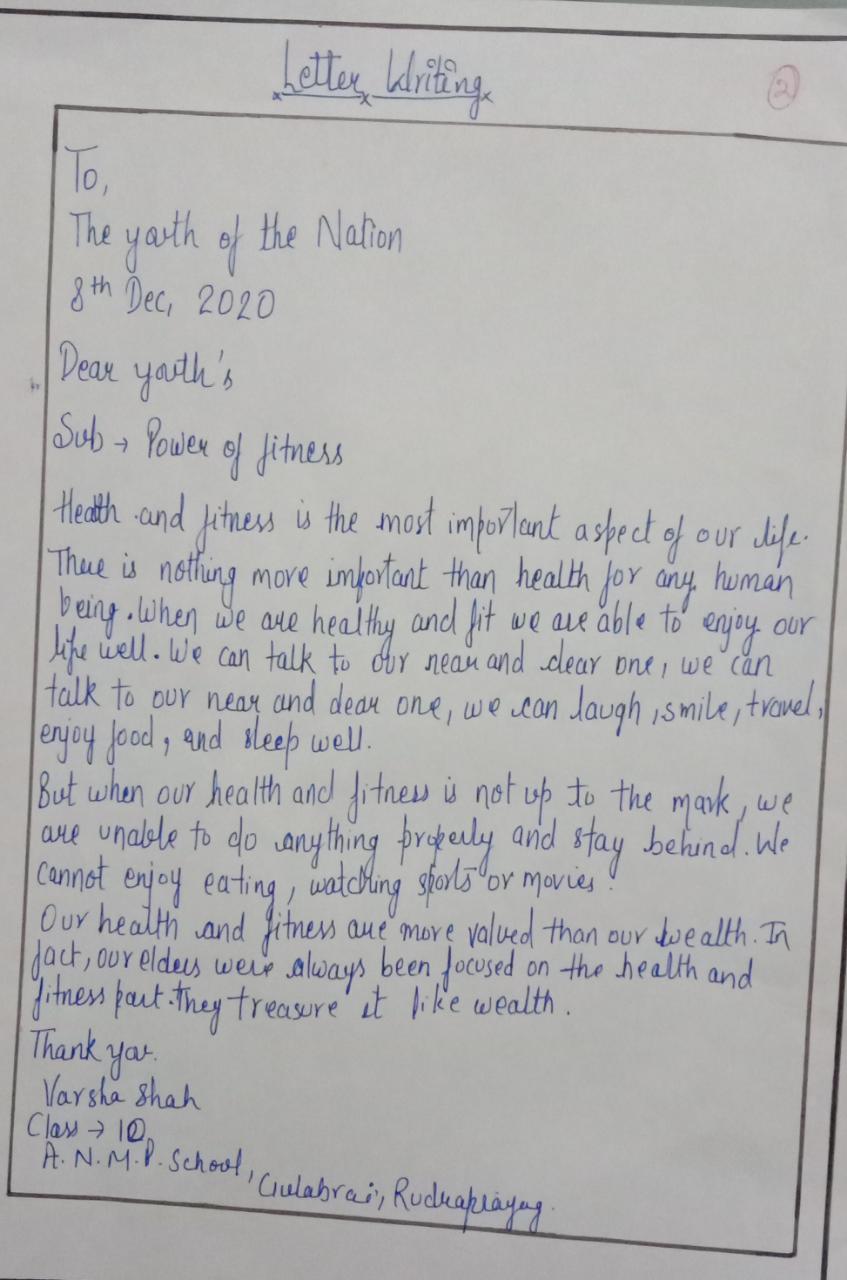 Letter Writing
2
To,
The youth of the Nation
8th Dec, 2020
Dear youth's
Sub → Power of fitness
Health and fitness is the most important aspect of our life.
There is nothing more important than health for any human
being. When we are healthy and fit we are able to enjoy our
life well. We can talk to our near and dear one, we can
talk to our near and dear one, we can laugh, smile, travel,
enjoy food, and sleep well.
But when our health and fitness is not up to the mark, we
are unable to do anything properly and stay behind. We
cannot enjoy eating, watching sports or movies.
Our health and fitness are more valued than our wealth. In
fact, our elders were always been focused on the health and
fitness part. They treasure it like wealth.
Thank you.
Varsha Shah
Class → 10
A.N.M.P. School,
Gulabrai, Rudraprayag.